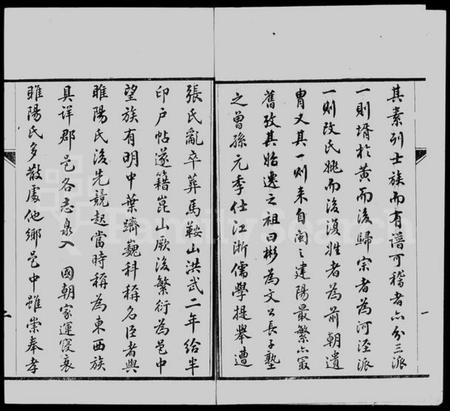 其素列士族而有譜可稽者亦分三派
一則壻於黄而後歸宗者為河涇派
一則改氏姚而後復姓者為前朝遺
胄又其一則来自閩之建陽最繁亦最
舊攷其始遷之祖曰彬為文公長子塾
之曾孫元季仕江浙儒學提舉遭
張氏亂卒葬馬鞍山洪武二年給半
印户帖遂籍崑山厥後繁衍為邑中
望族有明中葉躋巍科稱名臣者與
睢陽氏後先競起當時稱為東西族
具詳郡邑各志泉入 國朝家運寖衰
睢陽氏多散處他鄉邑中雖崇奉孝